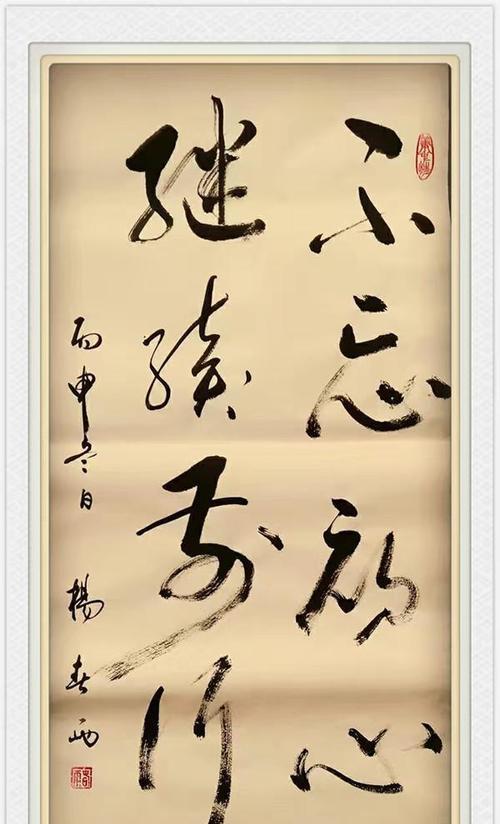 不忘初心
继续前行
丙申冬日 杨春